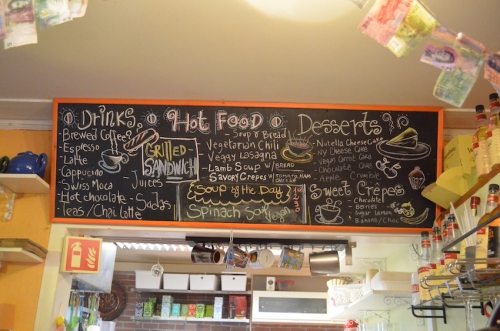 Drinks
Brewed Coffee
- Espresso
- Latte
- Cappucino
- Swiss Moca
- Hot chocolate
- Teas/Chai Latte
- Juices
- Sodas
Hot Food
GRILLED
SANDWICH
- Soup & Bread
- Vegetarian Chili
- Veggy Lasagna
- Lamb Soup W/BREAD
- Savory Crepes
Soup of the Day
Spinach
Desserts
- Nutella Cheese Cake
- Chocolate Cake
Sweet Crepes
- Chocolate
- Berries
- Sugar Lemon